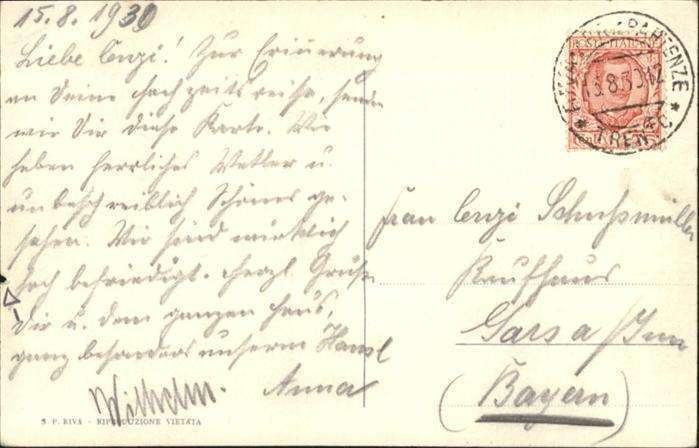 15.8.1930
Liebe Cenzi! Zur Erinnerung
an Deine Hochzeitsreise, senden
wir Dir diese Karte. Wir
haben herrliches Wetter u.
unbeschreiblich Schönes ge-
sehen. Wir sind wirklich
hoch befriedigt. Herzl. Grüße
Dir u. dem ganzen Haus,
ganz besonders unserm Hansl
Wilhelm. Anna
Frau Cenzi Schußmüller
Kaufhaus
Gars a/Inn
(Bayern)
POSTE ITALIANE
PARTENZE
TRENTO
S. P. RIVA - RIPRODUZIONE VIETATA